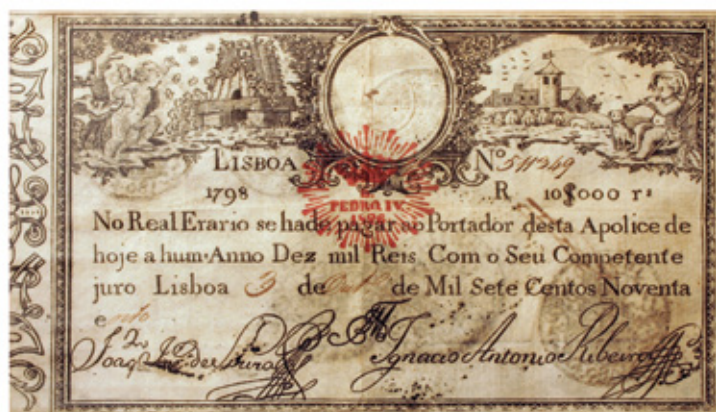 LISBOA Nº 511249
1798 R 10$000 rˢ
PEDRO IV
1826
No Real Erario se hade pagar ao Portador desta Apolice de
hoje a hum Anno Dez mil Reis Com o Seu Competente
juro Lisboa 3 de de Mil Sete Centos Noventa
e
Ignacio Antonio Ribeiro